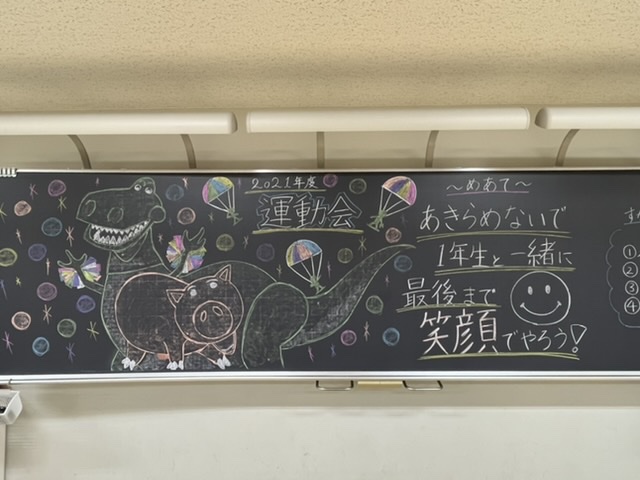 2021年度
運動会
～めあて～
あきらめないで
1年生と一緒に
最後まで
笑顔でやろう!
①
②
③
④